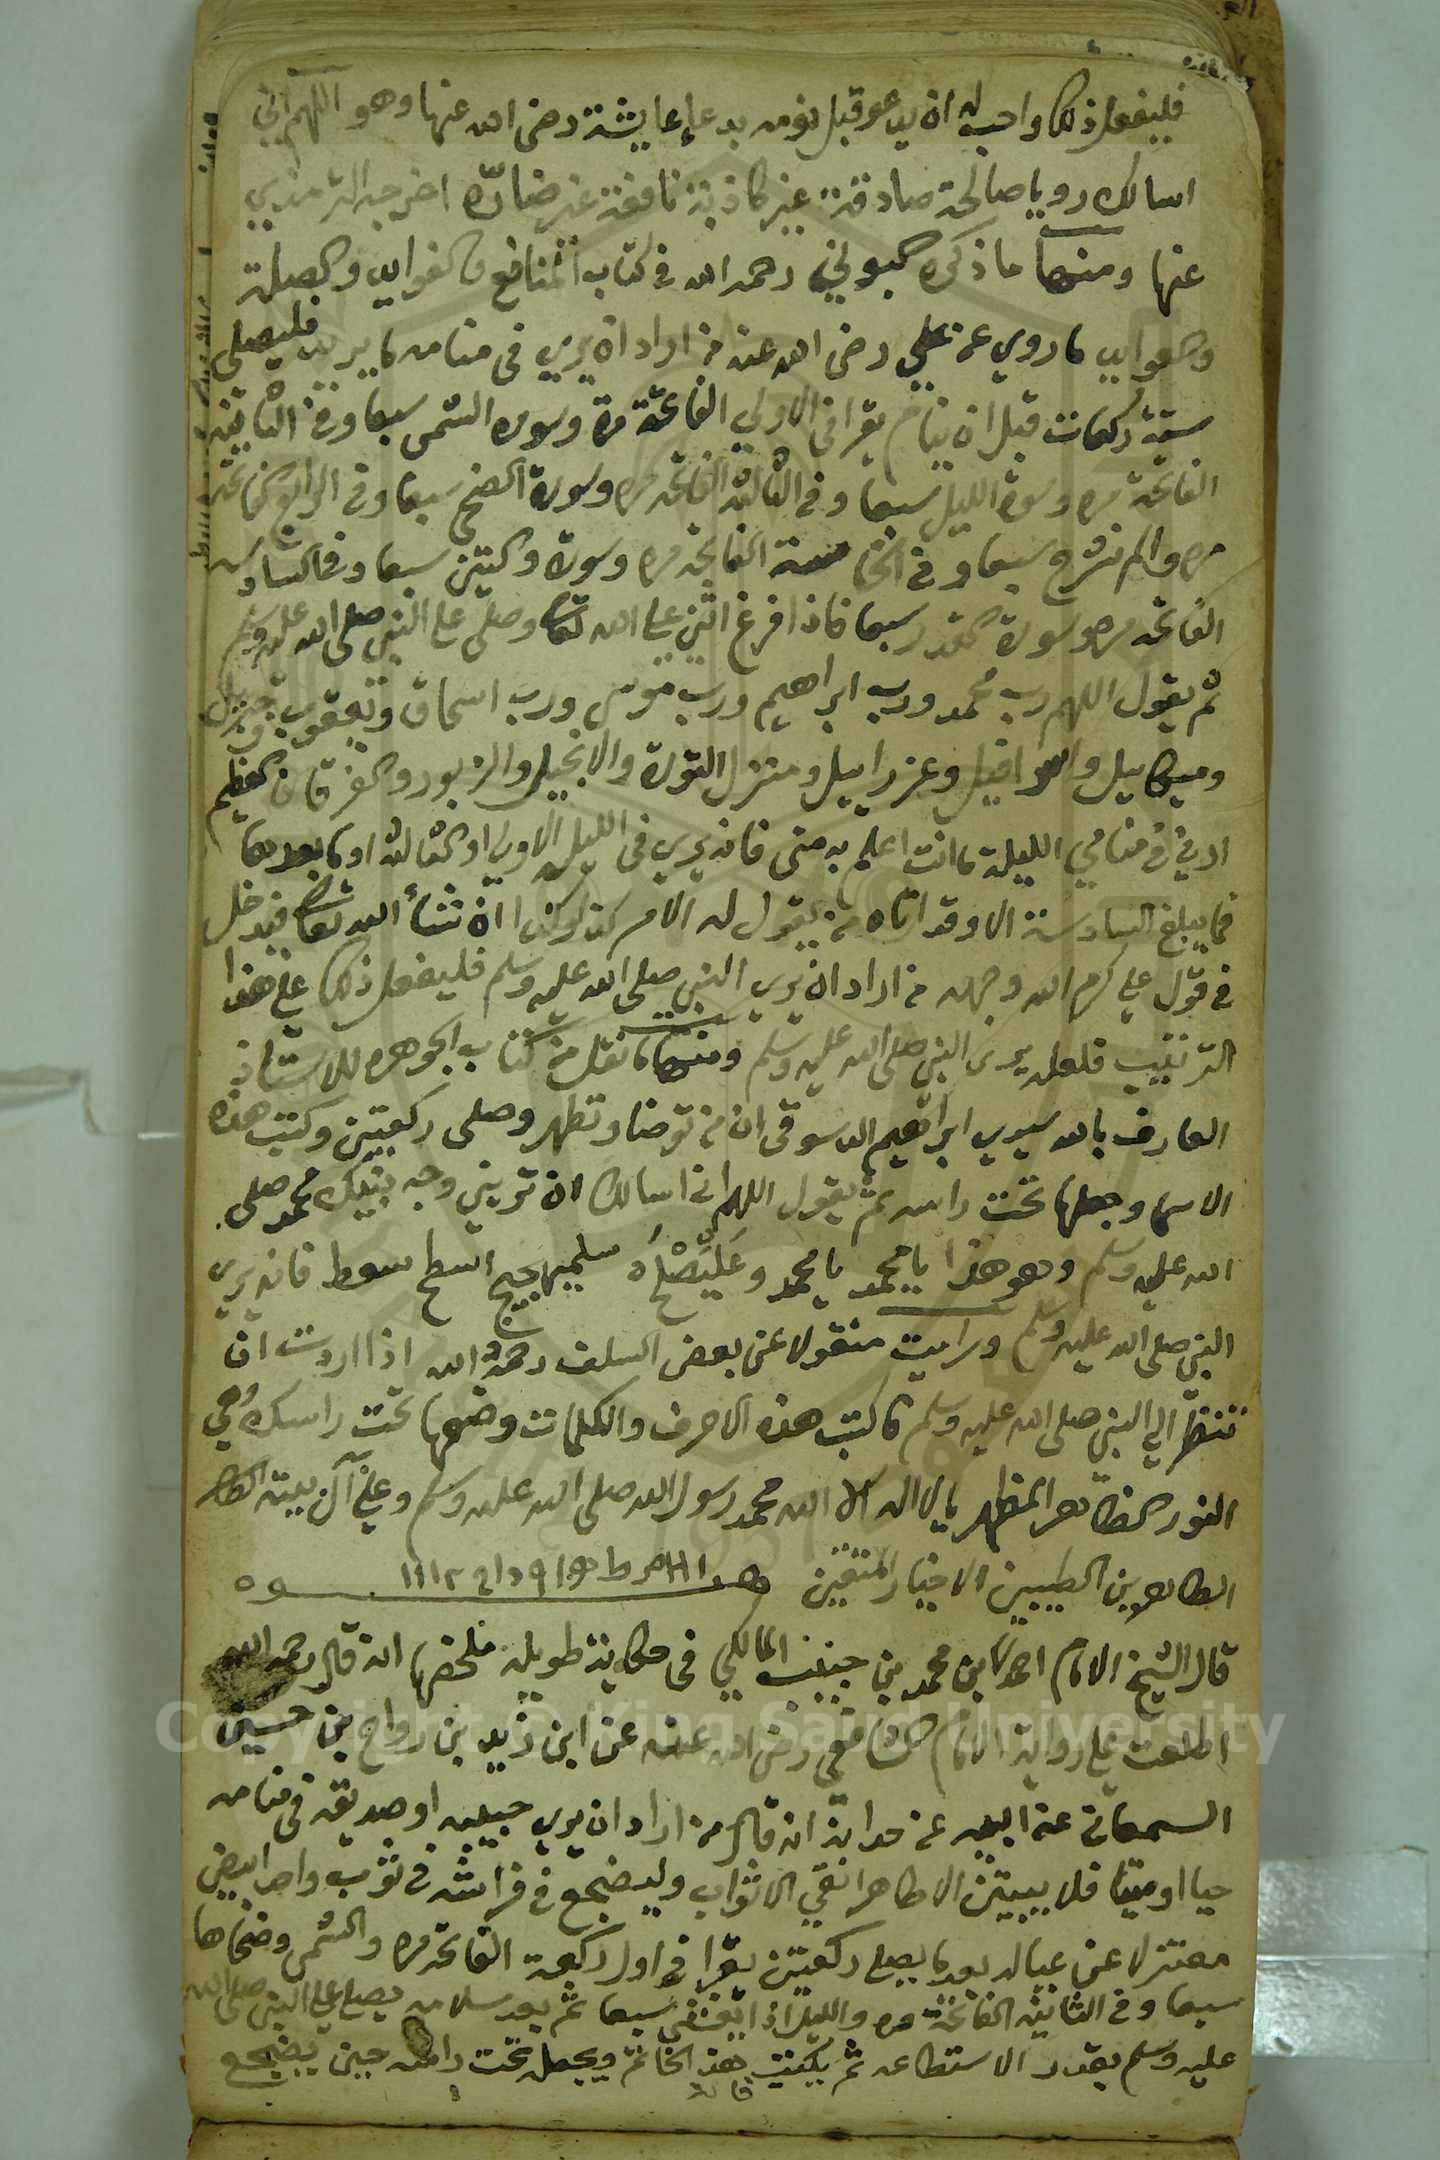 فليفعل ذلك واحب له ان يدعو قبل نومه بدعا عايشة رضى الله عنها وهو اللهم اني
اسالك رويا صالحة صادقة غير كاذبة نافعة غير ضارة اخرجه الترمذي
عنها ومنها ما ذكره البوني رحمه الله في كتاب المنافع والفوايد والصلة
والعوايد ما روي عن علي رضى الله عنه من اراد ان يري في منامه ما يريد فليصلى
ستة ركعات قبل ان ينام يقرا في الاولي الفاتحة مرة وسورة الشمس سبعا وفي الثانية
الفاتحة مره وسورة الليل سبعا وفي الثالثة الفاتحه مره وسورة الضحى سبعا وفي الرابع الفاتحة
مره والم نشرح سبعا وفي الخامسة الفاتحه مره وسورة والتين سبعا وفي السادسه
الفاتحه مره وسورة القدر سبعا فاذا فرغ اثني على الله تعالى وصلى على النبي صلى الله عليه وسلم
ثم يقول اللهم رب محمد ورب ابراهيم ورب موسى ورب اسحاق ويعقوب وجبريل
وميكاييل واسرافيل وعزراييل ومنزل التورة والانجيل والزبور والفرقان العظيم
ارني في منامي الليلة ما انت اعلم به منى فانه يري في الليل الاولي او الثالثة او ما بعدها
فما يبلغ السادسة الا وقد اتاه من يقول له الامر كذا وكذا ان شأ الله تعالى فيدخل
في قول علي كرم الله وجهه من اراد ان يري النبي صلى الله عليه وسلم فليفعل ذلك على هذا
الترتيب فلعله يرى النبي صلى الله عليه وسلم ومنها ما نقل من كتاب الجوهره للاستاذ
العارف بالله سيدي ابراهيم الدسوقى ان من توضا وتطهر وصلى ركعتين وكتب هذه
الاسما وجعلها تحت راسه ثم يقول اللهم اني اسالك ان تريني وجه نبيك محمد صلى
الله عليه وسلم وهو هذا يا محمد يا محمد فانه يري
النبي صلى الله عليه وسلم ورايت منقولا عن بعض السلف رحمه الله اذا اردت ان
تنظر الي النبي صلى الله عليه وسلم فاكتب هذه الاحرف والكلمات وضعها تحت راسك وهي
النور الظاهر المظهر لا اله الا الله محمد رسول الله صلى الله عليه وسلم وعلى آل بيته
الطاهرين الطيبين الاخيار المتقين
قال الشيخ الامام احمد ابن محمد بن المالكي في حكاية طويلة ملخصها انه قال رحمه الله
اطلعت على رواية الامام الشافعي رضى الله عنه عن ابن زيد بن رواح بن حسين
السمعاني عن ابيه عن انه قال من اراد ان يري حبيبه او صديقه في منامه
حيا او ميتا فلا يبيتن الا طاهرا نقي الاثواب وليضجع في فراشه في ثوب واحد ابيض
معتزلا عن عياله بعد ما يصلي ركعتين يقرا في اول ركعة الفاتحه مره والشمس وضحاها
سبعا وفي الثانية الفاتحة مره والليل اذا يغشى سبعا ثم بعد سلامه يصلي على النبي صلى الله
عليه وسلم بقدر الاستطاعه ثم يكتب هذا الخاتم ويجعل تحت راسه حين يضجع
Copyright © King Saud University